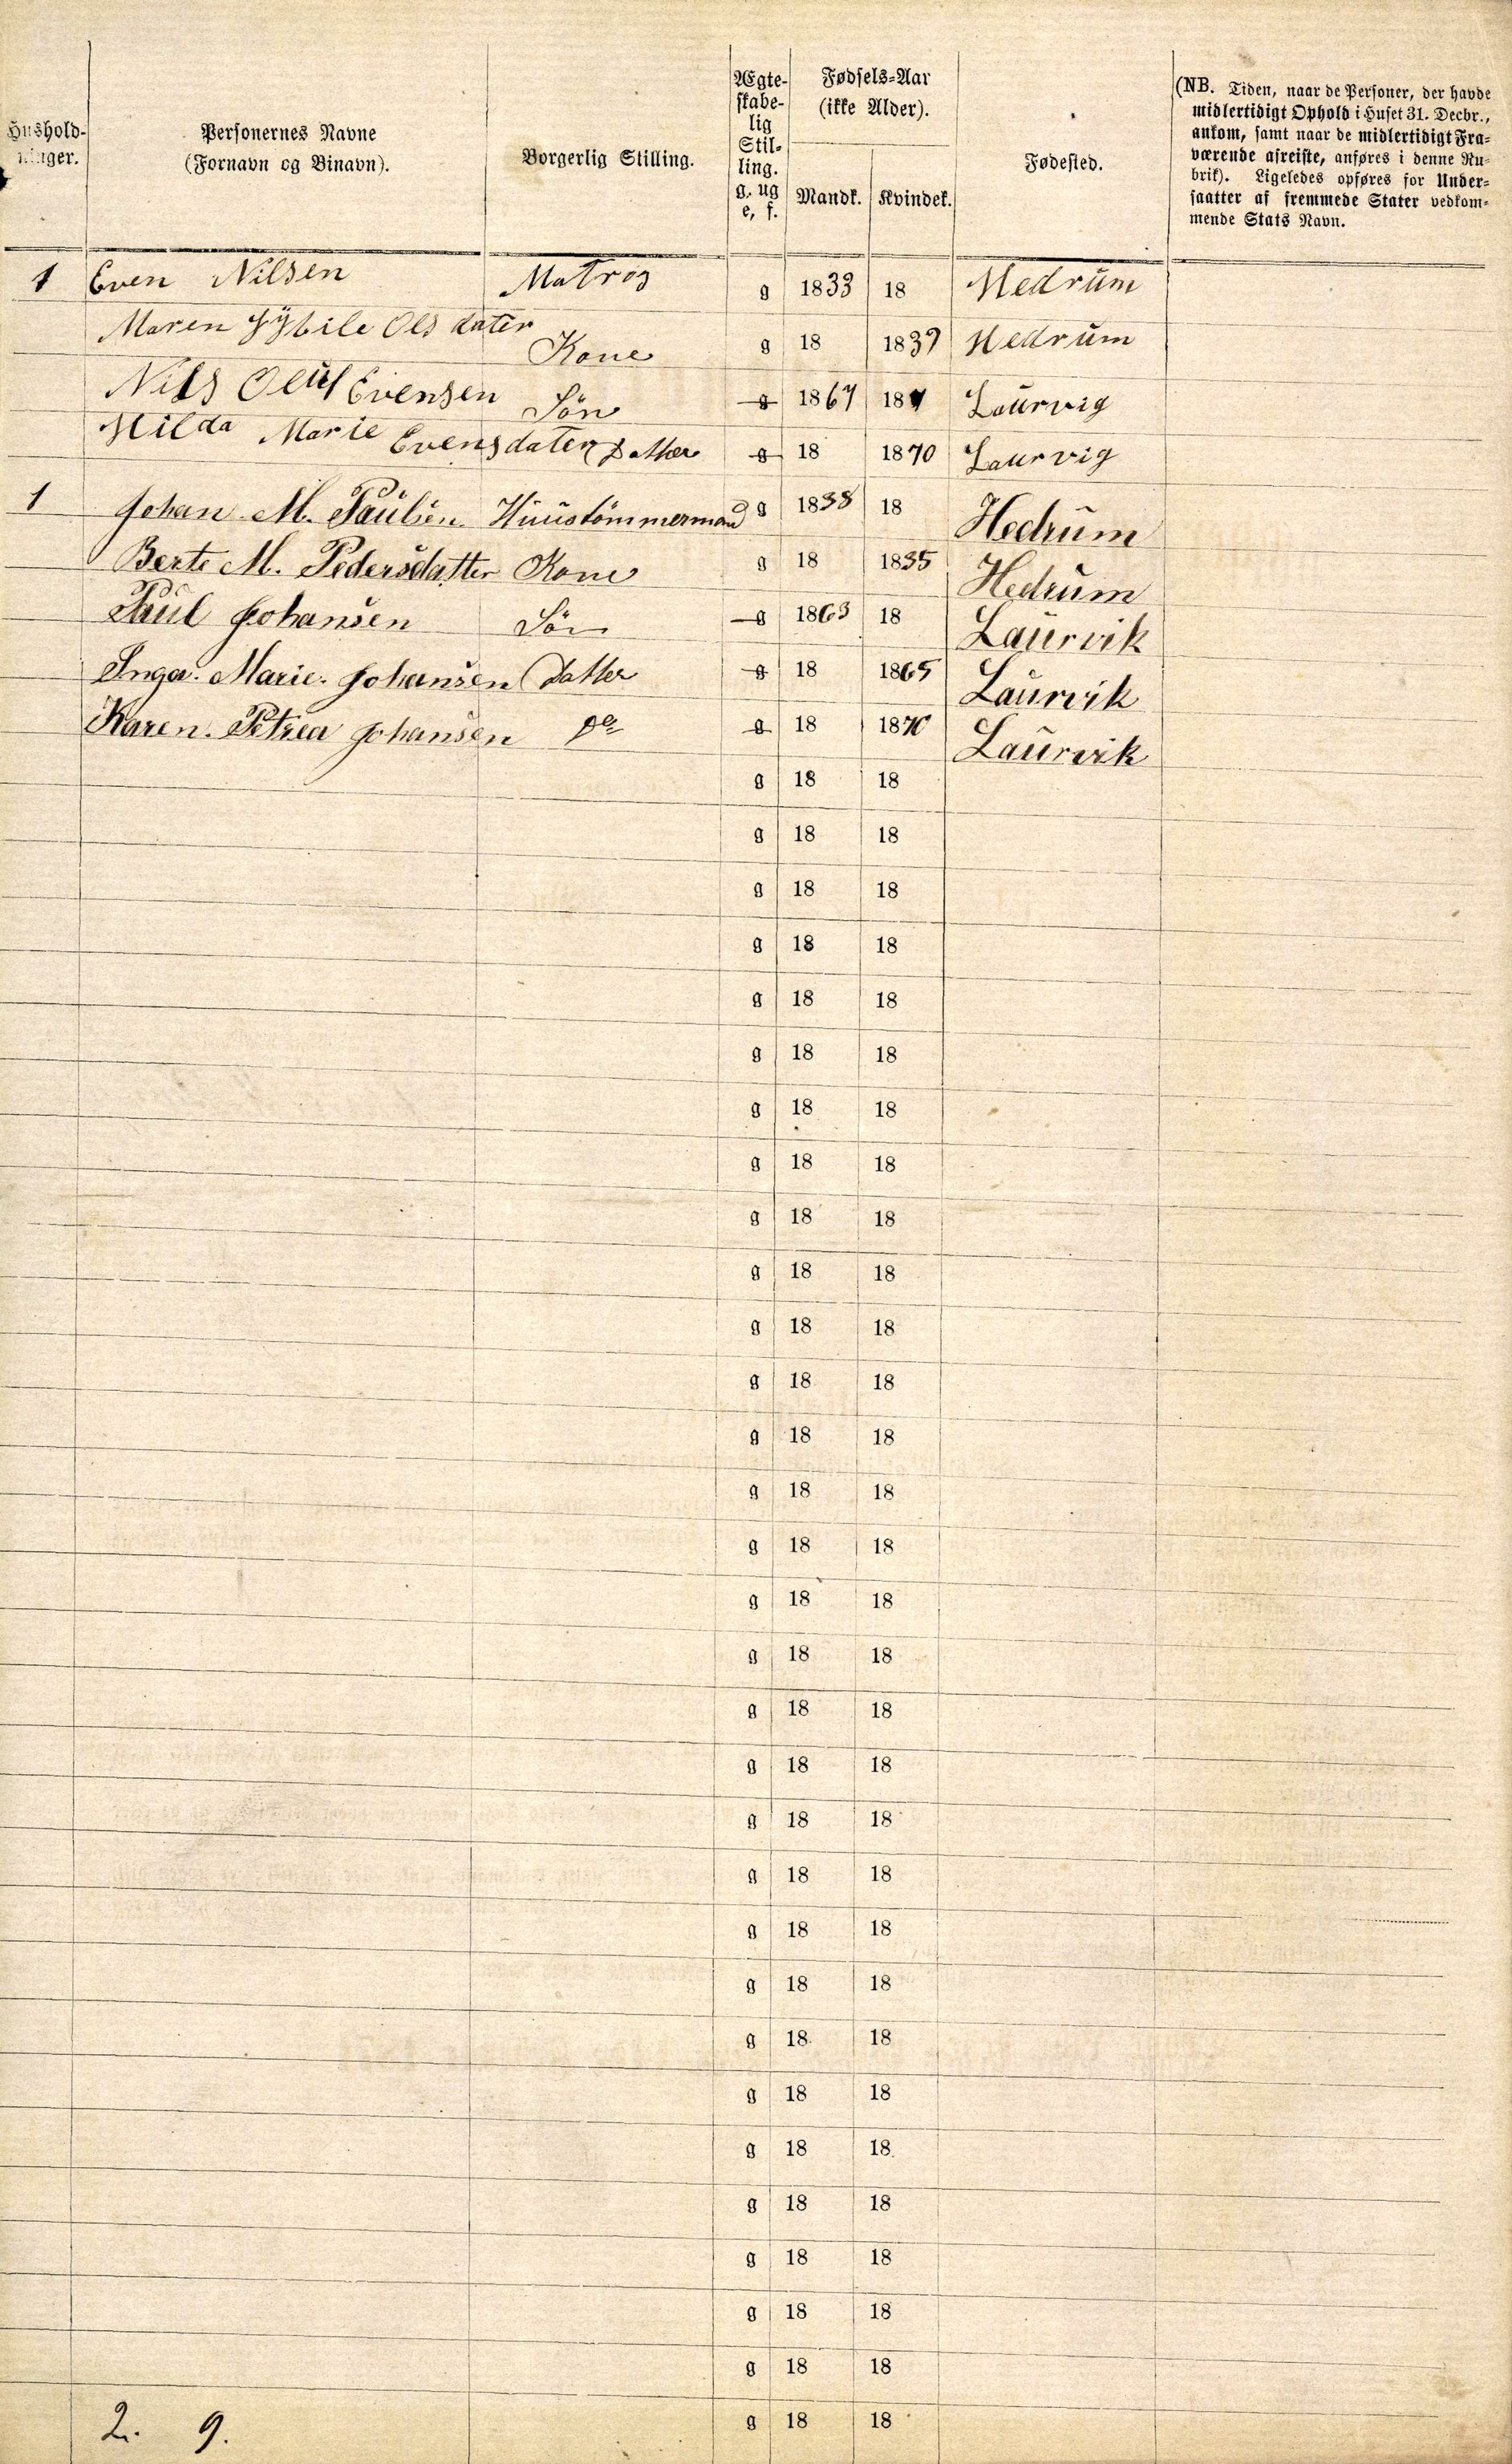 Hushold-
ninger.
Personernes Navne
(Fornavn og Binavn).
Borgerlig Stilling.
Ægte-
skabe-
lig
Stil-
ling.
g. ug
e, f.
Fødsels-Aar
(ikke Alder).
Mandk. Kvindek.
Fødested.
(NB. Tiden, naar de Personer, der havde
midlertidigt Ophold i Huset 31. Decbr.,
ankom, samt naar de midlertidigt Fra-
værende afreiste, anføres i denne Ru-
brik). Ligeledes opføres for Under-
saatter af fremmede Stater vedkom-
mende Stats Navn.
1 Even Nilsen Matros g 1833 18 Hedrum
Maren Sybile Olsdater Kone g 18 1839 Hedrum
Nils Oluf Evensen Sön g 1867 18 Laurvig
Hilda Marie Evensdater Datter g 18 1870 Laurvig
1 Johan M. Paulsen Huustömmermand g 1838 18 Hedrum
Berte M. Pedersdatter Kone g 18 1835 Hedrum
Paul Johansen Sön g 1863 18 Laurvik
Inga. Marie. Johansen Datter g 18 1865 Laurvik
Karen. Petrea Johansen do g 18 1870 Laurvik
g 18 18
g 18 18
g 18 18
g 18 18
g 18 18
g 18 18
g 18 18
g 18 18
g 18 18
g 18 18
g 18 18
g 18 18
g 18 18
g 18 18
g 18 18
g 18 18
g 18 18
g 18 18
g 18 18
g 18 18
g 18 18
g 18 18
g 18 18
g 18 18
g 18 18
g 18 18
g 18 18
g 18 18
g 18 18
g 18 18
g 18 18
2. 9. g 18 18